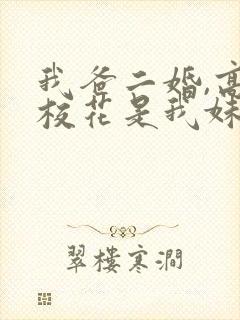 我爸二婚,高
校花是我妹
翠楼寒涧